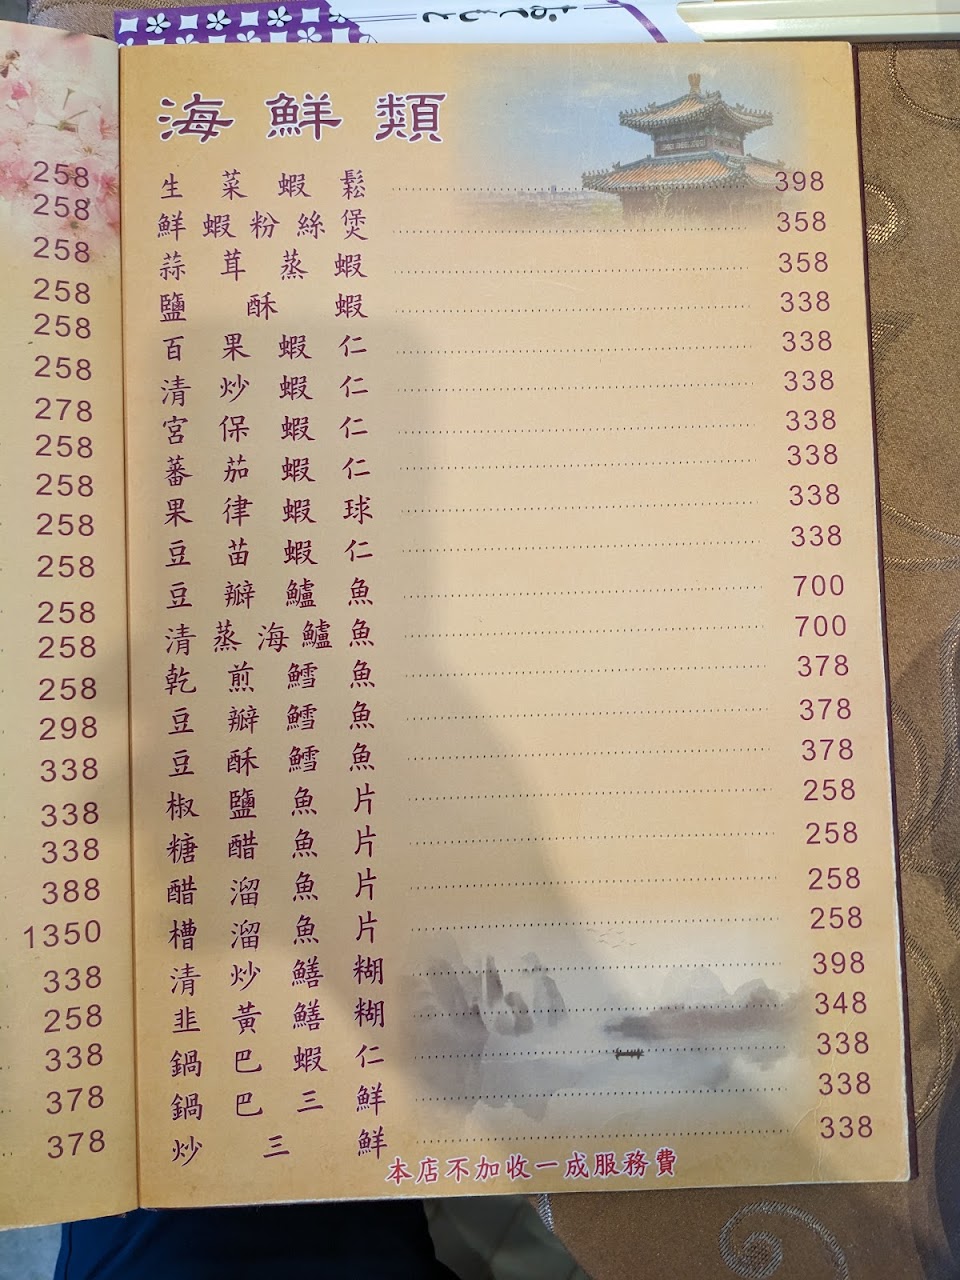 おてもと
258
258
258
258
258
258
278
258
258
258
258
258
258
258
298
338
338
338
388
1350
338
258
338
378
378
海鮮類
生菜蝦鬆 398
鮮蝦粉絲煲 358
蒜茸蒸蝦 358
鹽酥蝦 338
百果蝦仁 338
清炒蝦仁 338
宮保蝦仁 338
蕃茄蝦仁 338
果律蝦球 338
豆苗蝦仁 338
豆瓣鱸魚 700
清蒸海鱸魚 700
乾煎鱈魚 378
豆瓣鱈魚 378
豆酥鱈魚 378
椒鹽魚片 258
糖醋魚片 258
醋溜魚片 258
槽溜魚片 258
清炒鱔糊 398
韭黃鱔糊 348
鍋巴蝦仁 338
鍋巴三鮮 338
炒三鮮 338
本店不加收一成服務費